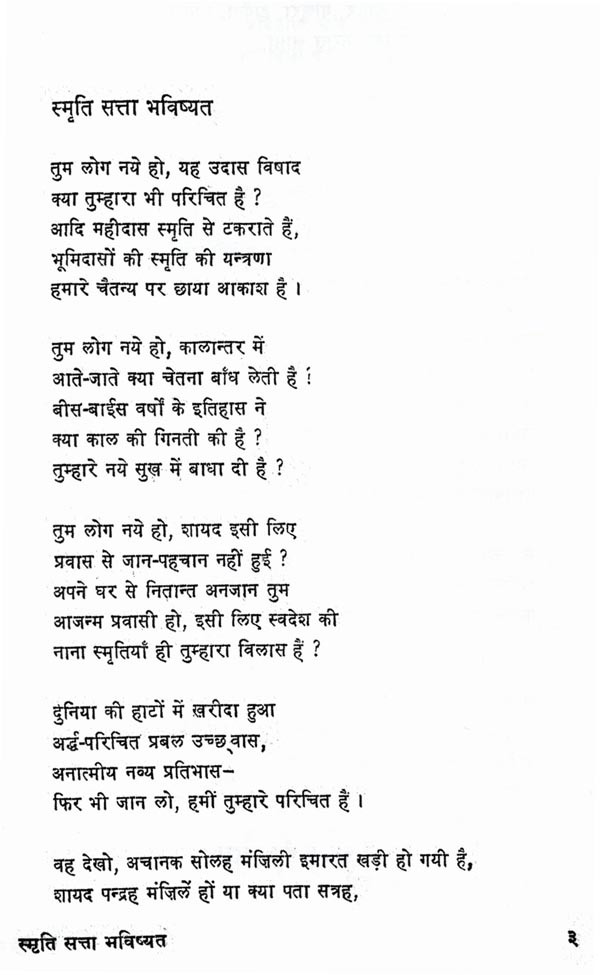 स्मृति सत्ता भविष्यत
तुम लोग नये हो, यह उदास विषाद
क्या तुम्हारा भी परिचित है ?
आदि महीदास स्मृति से टकराते हैं,
भूमिदासों की स्मृति की यन्त्रणा
हमारे चैतन्य पर छाया आकाश है ।
तुम लोग नये हो, कालान्तर में
आते-जाते क्या चेतना बाँध लेती है !
बीस-बाईस वर्षों के इतिहास ने
क्या काल की गिनती की है ?
तुम्हारे नये सुख में बाधा दी है ?
तुम लोग नये हो, शायद इसी लिए
प्रवास से जान-पहचान नहीं हुई ?
अपने घर से नितान्त अनजान तुम
आजन्म प्रवासी हो, इसी लिए स्वदेश की
नाना स्मृतियाँ ही तुम्हारा विलास हैं ?
दुनिया की हाटों में ख़रीदा हुआ
अर्द्ध-परिचित प्रबल उच्छ्वास,
अनात्मीय नव्य प्रतिभास–
फिर भी जान लो, हमीं तुम्हारे परिचित हैं ।
वह देखो, अचानक सोलह मंज़िली इमारत खड़ी हो गयी है,
शायद पन्द्रह मंज़िलें हों या क्या पता सत्रह,
स्मृति सत्ता भविष्यत ३